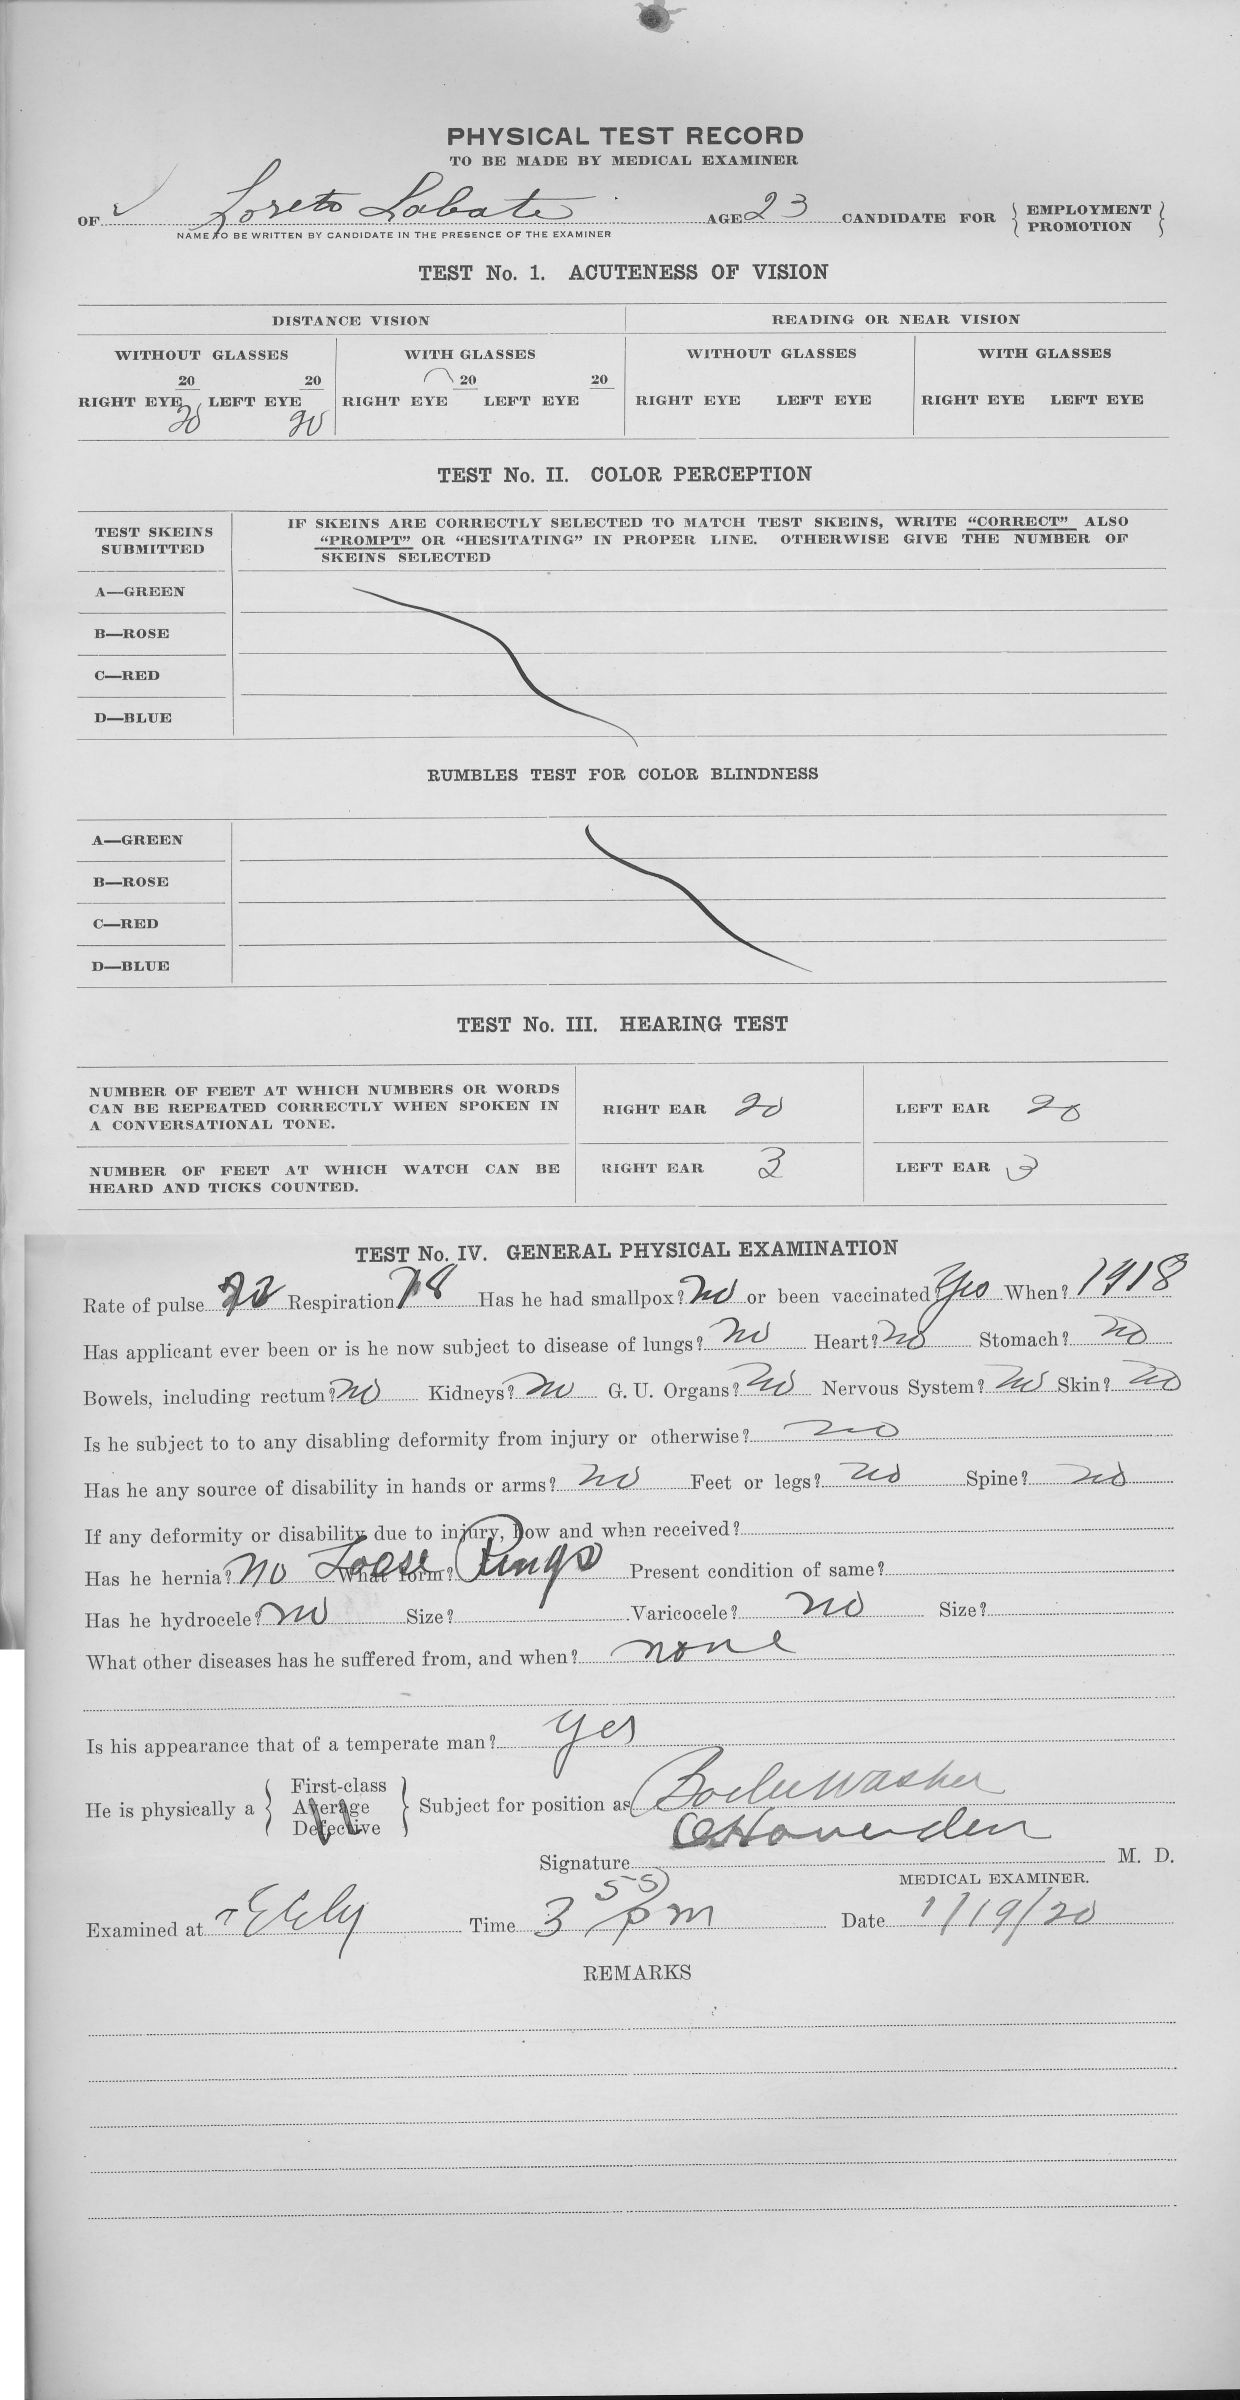 PHYSICAL TEST RECORD
TO BE MADE BY MEDICAL EXAMINER
OF Loreto Labate AGE 23 CANDIDATE FOR { EMPLOYMENT PROMOTION }
NAME TO BE WRITTEN BY CANDIDATE IN THE PRESENCE OF THE EXAMINER
TEST No. 1. ACUTENESS OF VISION
DISTANCE VISION READING OR NEAR VISION
WITHOUT GLASSES WITH GLASSES WITHOUT GLASSES WITH GLASSES
20 20 20 20
RIGHT EYE LEFT EYE RIGHT EYE LEFT EYE RIGHT EYE LEFT EYE RIGHT EYE LEFT EYE
20 20
TEST No. II. COLOR PERCEPTION
TEST SKEINS SUBMITTED
IF SKEINS ARE CORRECTLY SELECTED TO MATCH TEST SKEINS, WRITE "CORRECT" ALSO
"PROMPT" OR "HESITATING" IN PROPER LINE. OTHERWISE GIVE THE NUMBER OF
SKEINS SELECTED
A—GREEN
B—ROSE
C—RED
D—BLUE
RUMBLES TEST FOR COLOR BLINDNESS
A—GREEN
B—ROSE
C—RED
D—BLUE
TEST No. III. HEARING TEST
NUMBER OF FEET AT WHICH NUMBERS OR WORDS
CAN BE REPEATED CORRECTLY WHEN SPOKEN IN
A CONVERSATIONAL TONE.
RIGHT EAR 20 LEFT EAR 20
NUMBER OF FEET AT WHICH WATCH CAN BE
HEARD AND TICKS COUNTED.
RIGHT EAR 3 LEFT EAR 3
TEST No. IV. GENERAL PHYSICAL EXAMINATION
Rate of pulse Respiration 18 Has he had smallpox? no or been vaccinated? Yes When? 1918
Has applicant ever been or is he now subject to disease of lungs? no Heart? no Stomach? no
Bowels, including rectum? no Kidneys? no G. U. Organs? no Nervous System? no Skin? no
Is he subject to to any disabling deformity from injury or otherwise? no
Has he any source of disability in hands or arms? no Feet or legs? no Spine? no
If any deformity or disability due to injury, how and when received?
Has he hernia? no Loose What form? Rings Present condition of same?
Has he hydrocele? no Size? Varicocele? no Size?
What other diseases has he suffered from, and when? none
Is his appearance that of a temperate man? yes
He is physically a { First-class Average Defective } Subject for position as Boilerwasher
Signature M. D.
MEDICAL EXAMINER.
Examined at Time 3 55 pm Date 1/19/20
REMARKS